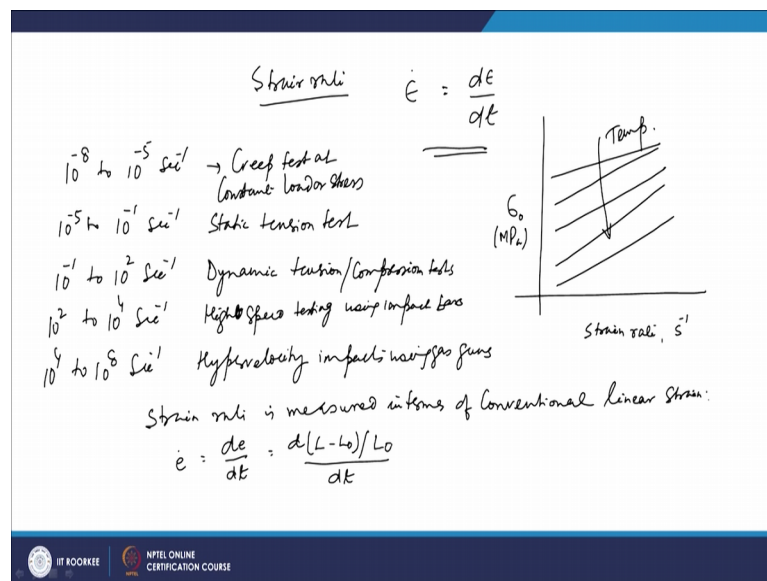 Strain rate
ε̇ = dε/dt
10⁻⁸ to 10⁻⁵ sec⁻¹ → Creep test at
Constant load or stress
10⁻⁵ to 10⁻¹ sec⁻¹ Static tension test
10⁻¹ to 10² sec⁻¹ Dynamic tension/Compression tests
10² to 10⁴ sec⁻¹ High speed testing using impact bars
10⁴ to 10⁸ sec⁻¹ Hypervelocity impacts using gas guns
Temp.
σ₀
(MPa)
Strain rate, s⁻¹
Strain rate is measured in terms of Conventional linear strain:
ė = de/dt = d(L-L₀)/L₀ / dt
IIT ROORKEE
NPTEL ONLINE
CERTIFICATION COURSE